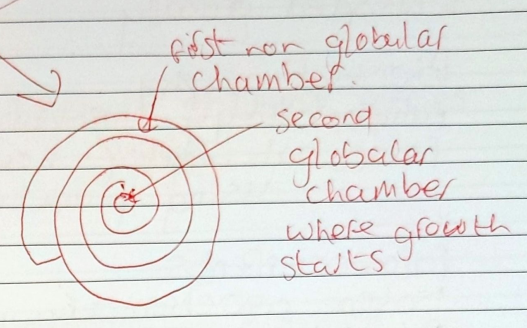 first non globular
chamber.
second
globalar
chamber
where growth
starts